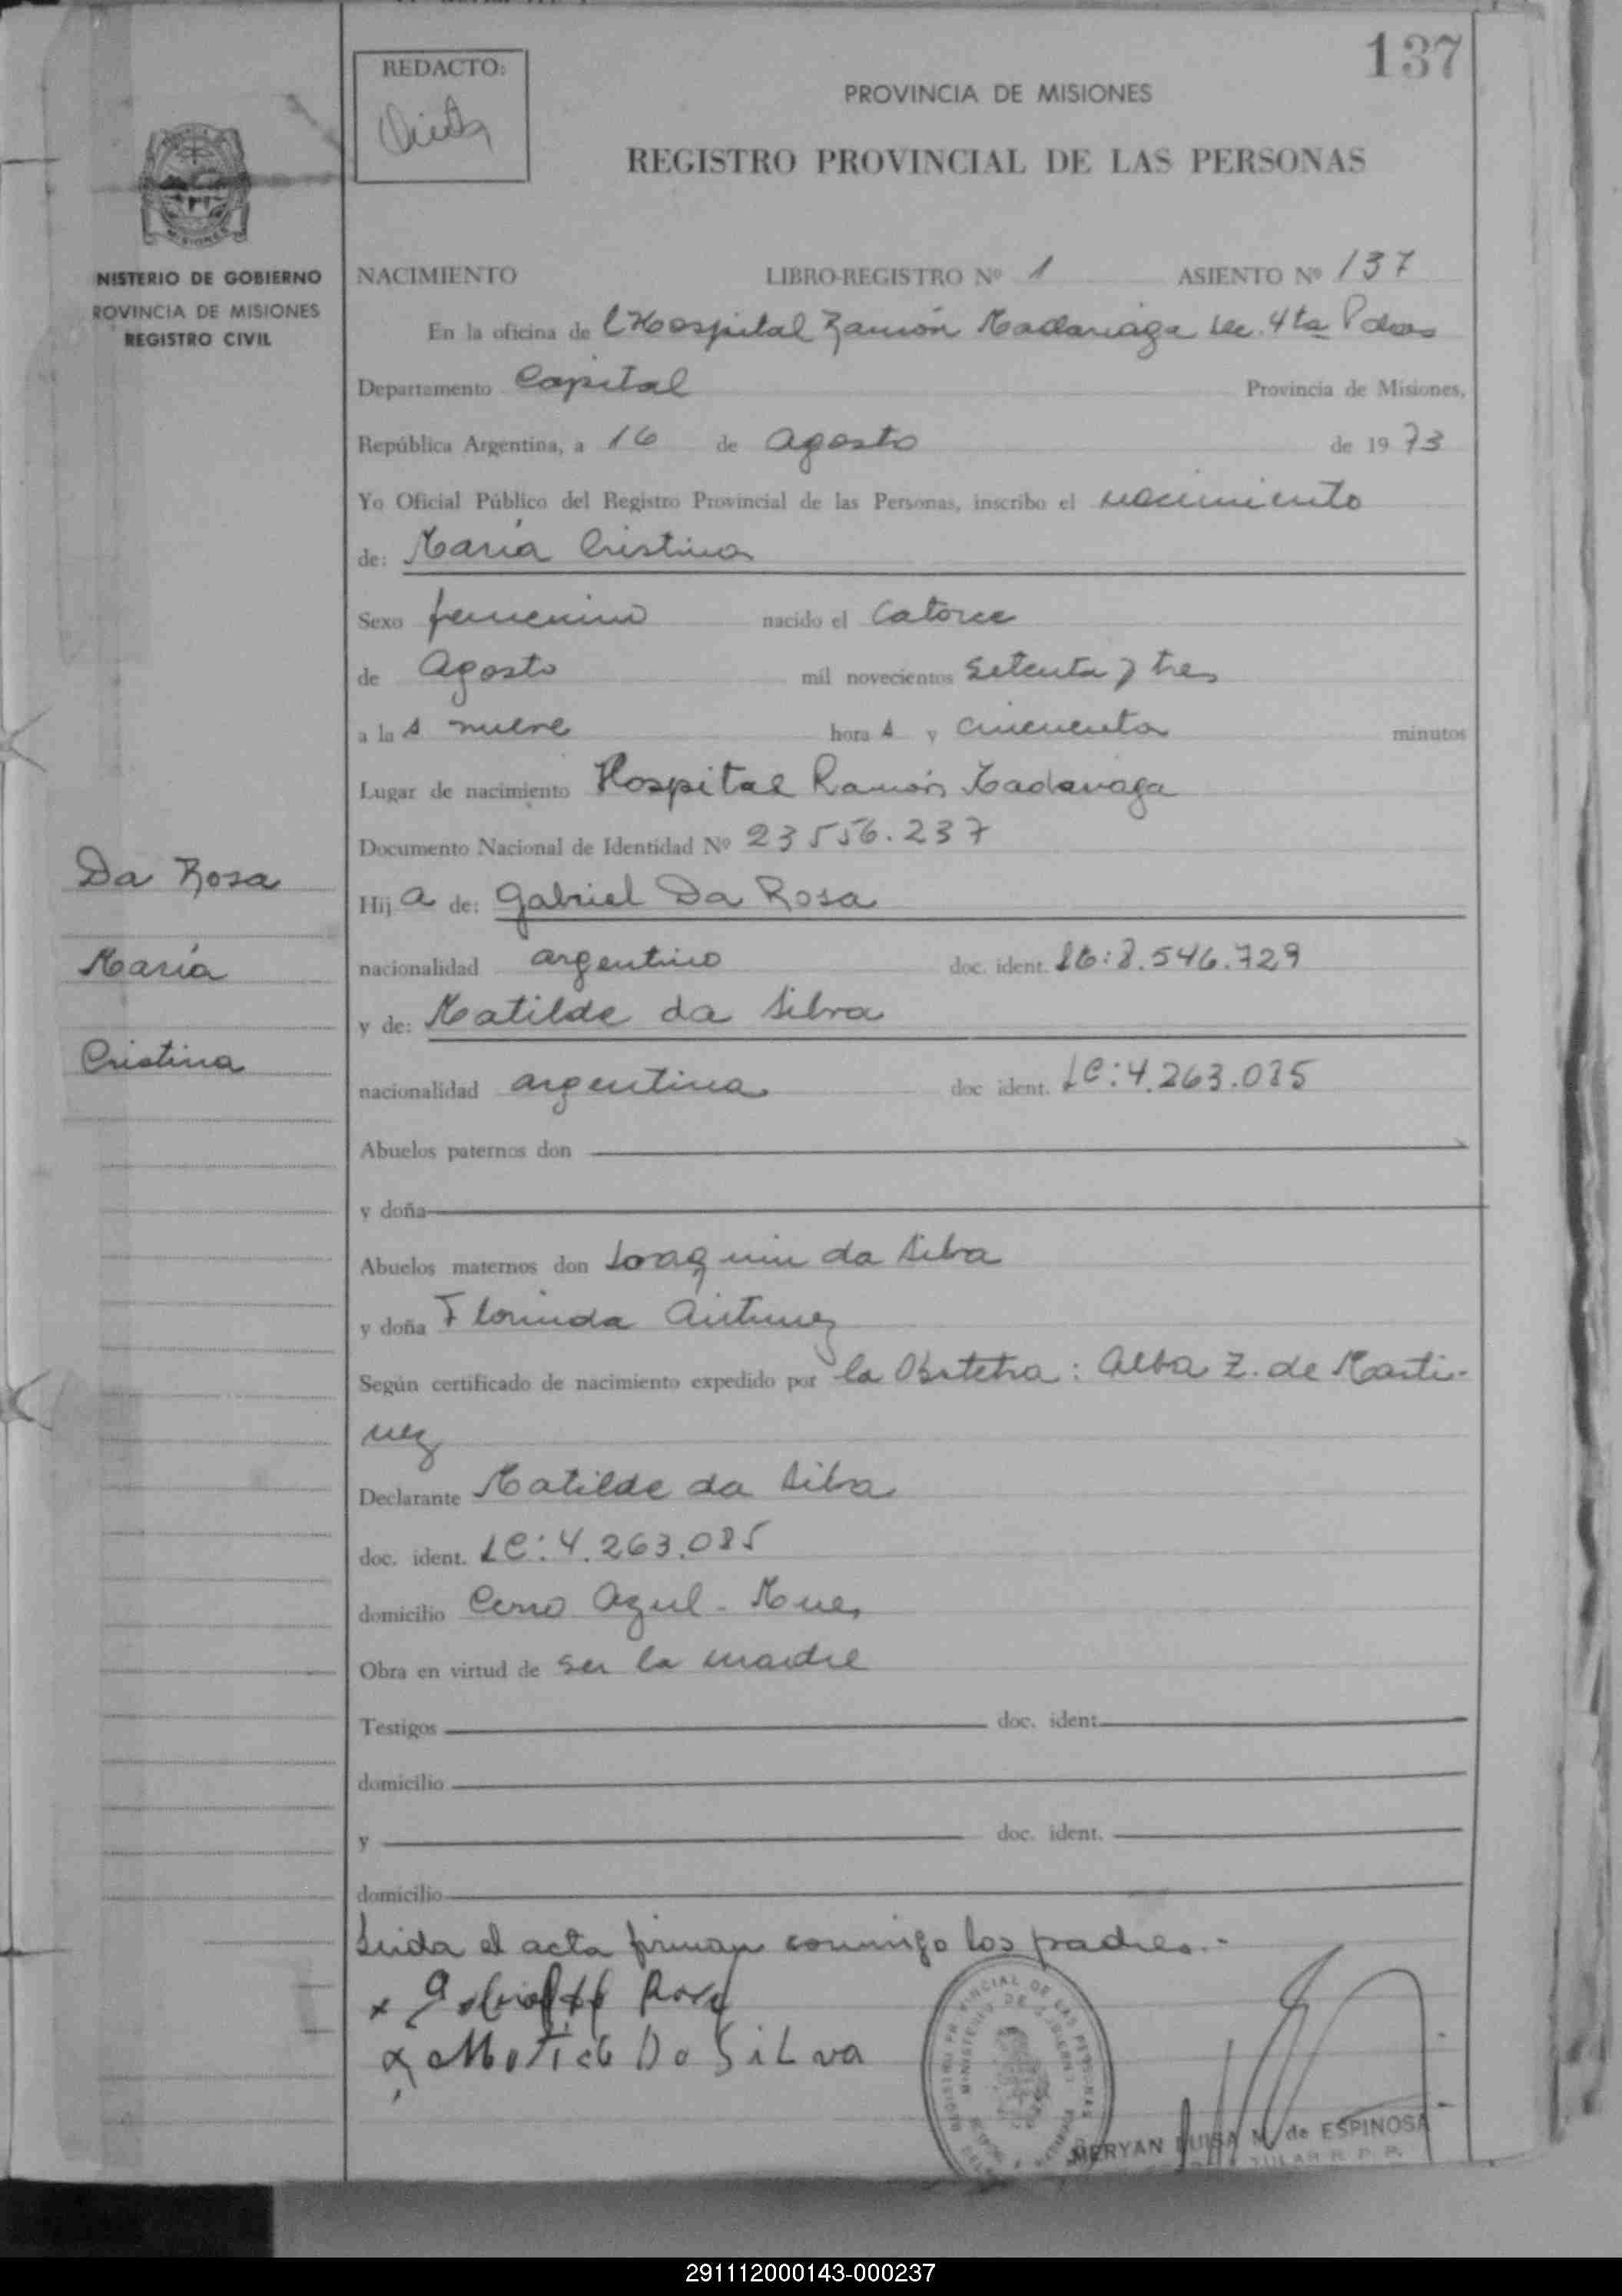 137
REDACTO:
PROVINCIA DE MISIONES
REGISTRO PROVINCIAL DE LAS PERSONAS
MISIONES
NISTERIO DE GOBIERNO
ROVINCIA DE MISIONES
REGISTRO CIVIL
NACIMIENTO LIBRO-REGISTRO Nº 1 ASIENTO Nº 137
En la oficina de l Hospital Ramón Madariaga Sec. 4ta Pdas
Departamento Capital Provincia de Misiones,
República Argentina, a 16 de Agosto de 1973
Yo Oficial Público del Registro Provincial de las Personas, inscribo el nacimiento
de: María Cristina
Sexo femenino nacido el Catorce
de Agosto mil novecientos setenta y tres
a las nueve horas y cincuenta minutos
Lugar de nacimiento Hospital Ramón Madariaga
Documento Nacional de Identidad Nº 23556.237
Hija de: Gabriel Da Rosa
nacionalidad argentino doc. ident. LE:8.546.729
y de: Matilde da Silva
nacionalidad argentina doc ident. LC:4.263.085
Abuelos paternos don
y doña
Abuelos maternos don Joaquin da Silva
y doña Florinda Antunez
Según certificado de nacimiento expedido por la Obstetra: Alba Z. de Marti-
nez
Declarante Matilde da Silva
doc. ident. LC:4.263.085
domicilio Cerro Azul - Mnes
Obra en virtud de ser la madre
Testigos doc. ident.
domicilio
y doc. ident.
domicilio
Leida el acta firman conmigo los padres.-
MERYAN LUISA M. de ESPINOSA
TULAR R. P. P.
Da Rosa
María
Cristina
291112000143-000237